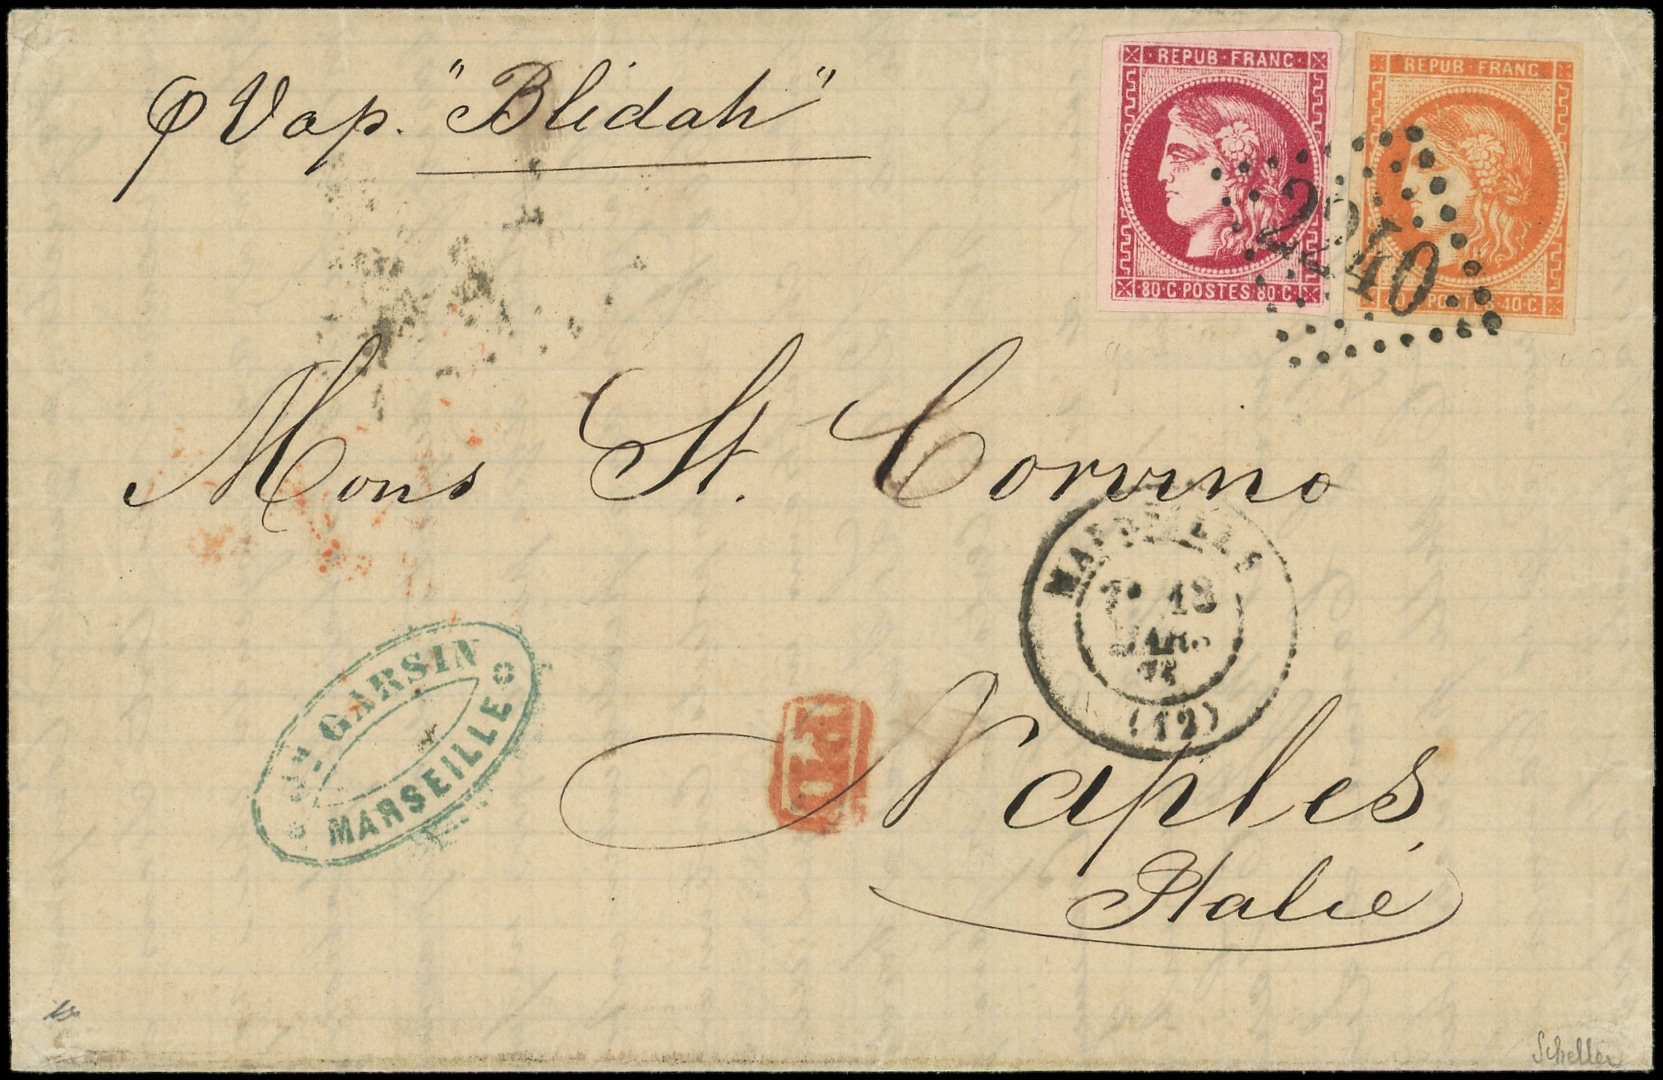 p Vap. "Blidah"
REPUB·FRANC·
80·C·POSTES·80·C·
REPUB·FRANC·
POSTES·40·C
2240
Mons St. Corvino
MARSEILLE
18
MARS
(12)
GARSIN
MARSEILLE
PD
Naples
Italie
Scheller